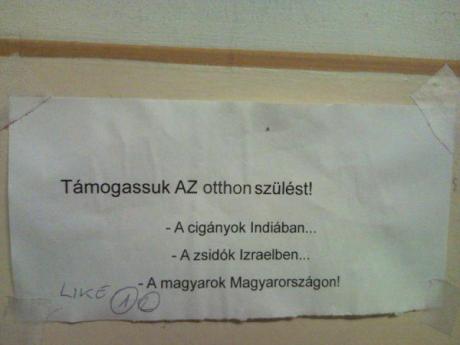 Támogassuk AZ otthon szülést!
- A cigányok Indiában...
- A zsidók Izraelben...
- A magyarok Magyarországon!
LIKE